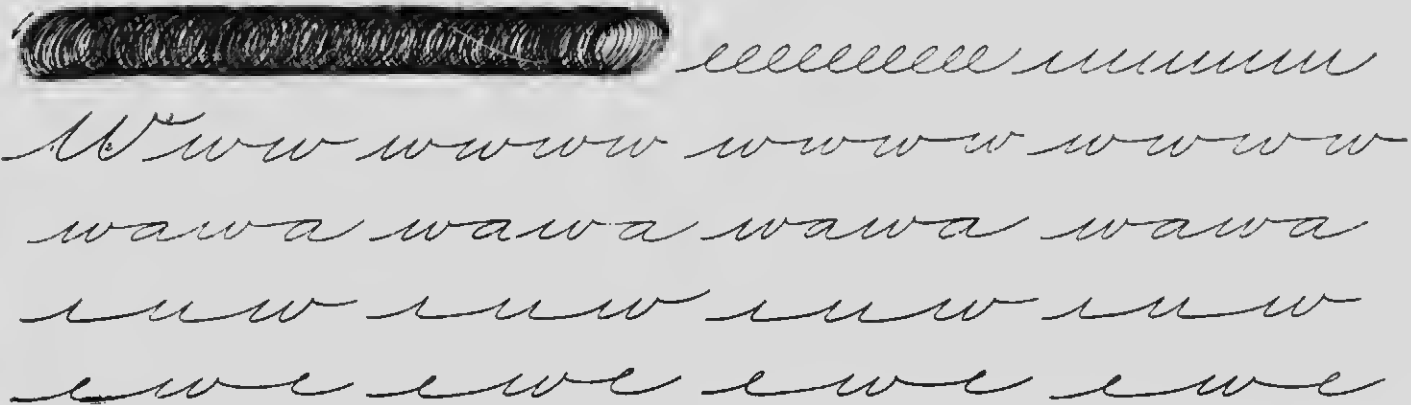 eeeeeeeee
Www wwww wwww wwww
wawa wawa wawa wawa
iuw iuw iuw iuw
ewe ewe ewe ewe